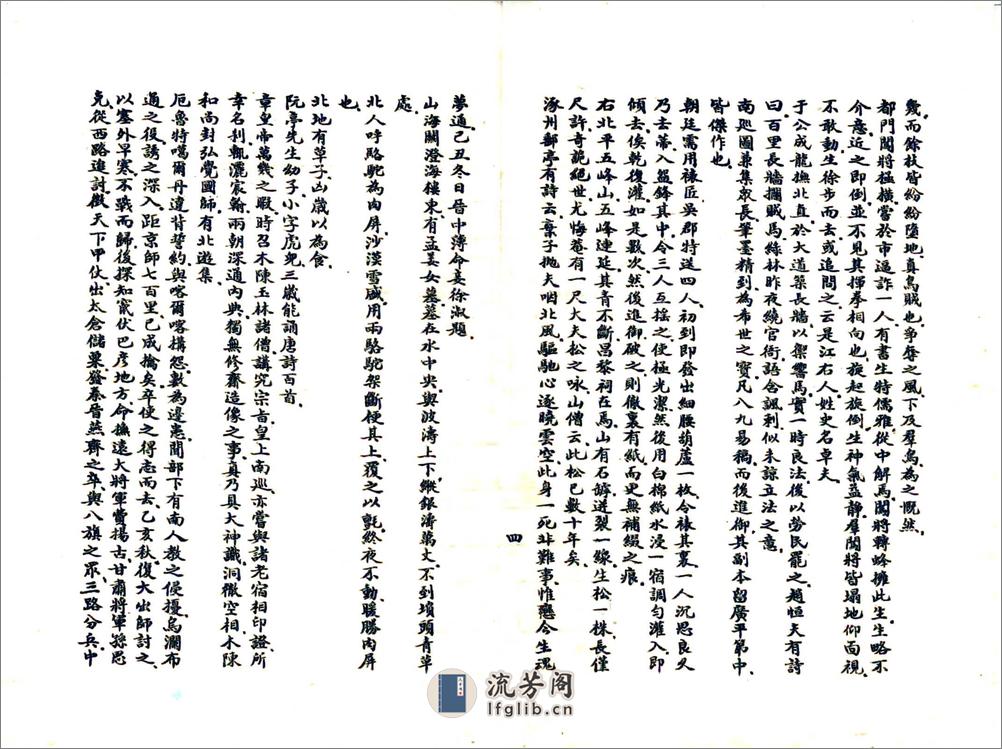 幾而餘技皆紛紛墮地真鳥賊也爭群之風下及羣鳥為之慨然
都門閫將極橫當於市逼詐一人有書生特儒雅從中解焉閫將轉蜂擁此生生略不
介意近之即倒並不見其揮拳相向也旋起旋倒生神氣益靜羣閫將皆塌地仰面視
不敢動生徐步而去或追問之云是江右人姓史名卓夫
于公成龍撫北直於大道築長牆以禦響馬實一時良法後以勞民罷之趙恒夫有詩
曰百里長牆攔賊馬綠林昨夜繞官衙語含諷刺似未諒立法之意
南巡圖兼集眾長筆墨精到為布世之寶凡八九易稿而後進御其副本留廣平第中
皆傑作也
朝廷需用裱匠吳郡特送四人初到即發出細腰葫蘆一枚令裱其裏一人沉思良久
乃去蒂入盌鋒其中令三人互搖之使極光潔然後用白棉紙水浸一宿調勻灌入即
傾去俟乾復灌如是數次然後進御破之則徹裏有紙而更無補綴之痕
右北平五峰山五峰連延其青不斷昌黎祠在焉山有石罅迸裂一線生松一株長僅
尺許奇詭絕世尤悔菴有一尺大夫松之咏山僧云此松已數十年矣
涿州郵亭有詩云棄子拋夫咽北風驅馳心逐曉雲空此身一死非難事惟戀今生魂
四
夢通己丑冬日晉中薄命妾徐淑題
山海關澄海樓東有孟姜女墓墓在水中央與波濤上下縱銀濤萬丈不到墳頭青草
處
北人呼駱駝為肉屏沙漠雪盛用兩駱駝架斷梗其上覆之以氈終夜不動暖勝肉屏
也
北地有草子凶歲以為食
阮亭先生幼子小字虎兜三歲能誦唐詩百首
章皇帝萬幾之暇時召木陳玉林諸僧講究宗旨皇上南巡亦嘗與諸老宿相印證所
幸名剎輒灑宸翰兩朝深通內典獨無修齋造像之事真乃具大神識洞徹空相木陳
和尚封弘覺國師有北遊集
厄魯特噶爾丹違背誓約與喀爾喀搆怨數為邊患聞部下有南人教之侵擾烏瀾布
通之役誘之深入距京師七百里已成擒矣卒使之得志而去乙亥秋復大出師討之
以塞外早寒不戰而歸後探知竄伏巴彥地方命撫遠大將軍費揚古甘肅將軍孫思
克從西路進討徵天下甲仗出太倉儲粟發秦晉燕齊之卒與八旗之眾三路分兵中
流芳阁
lfglib.cn